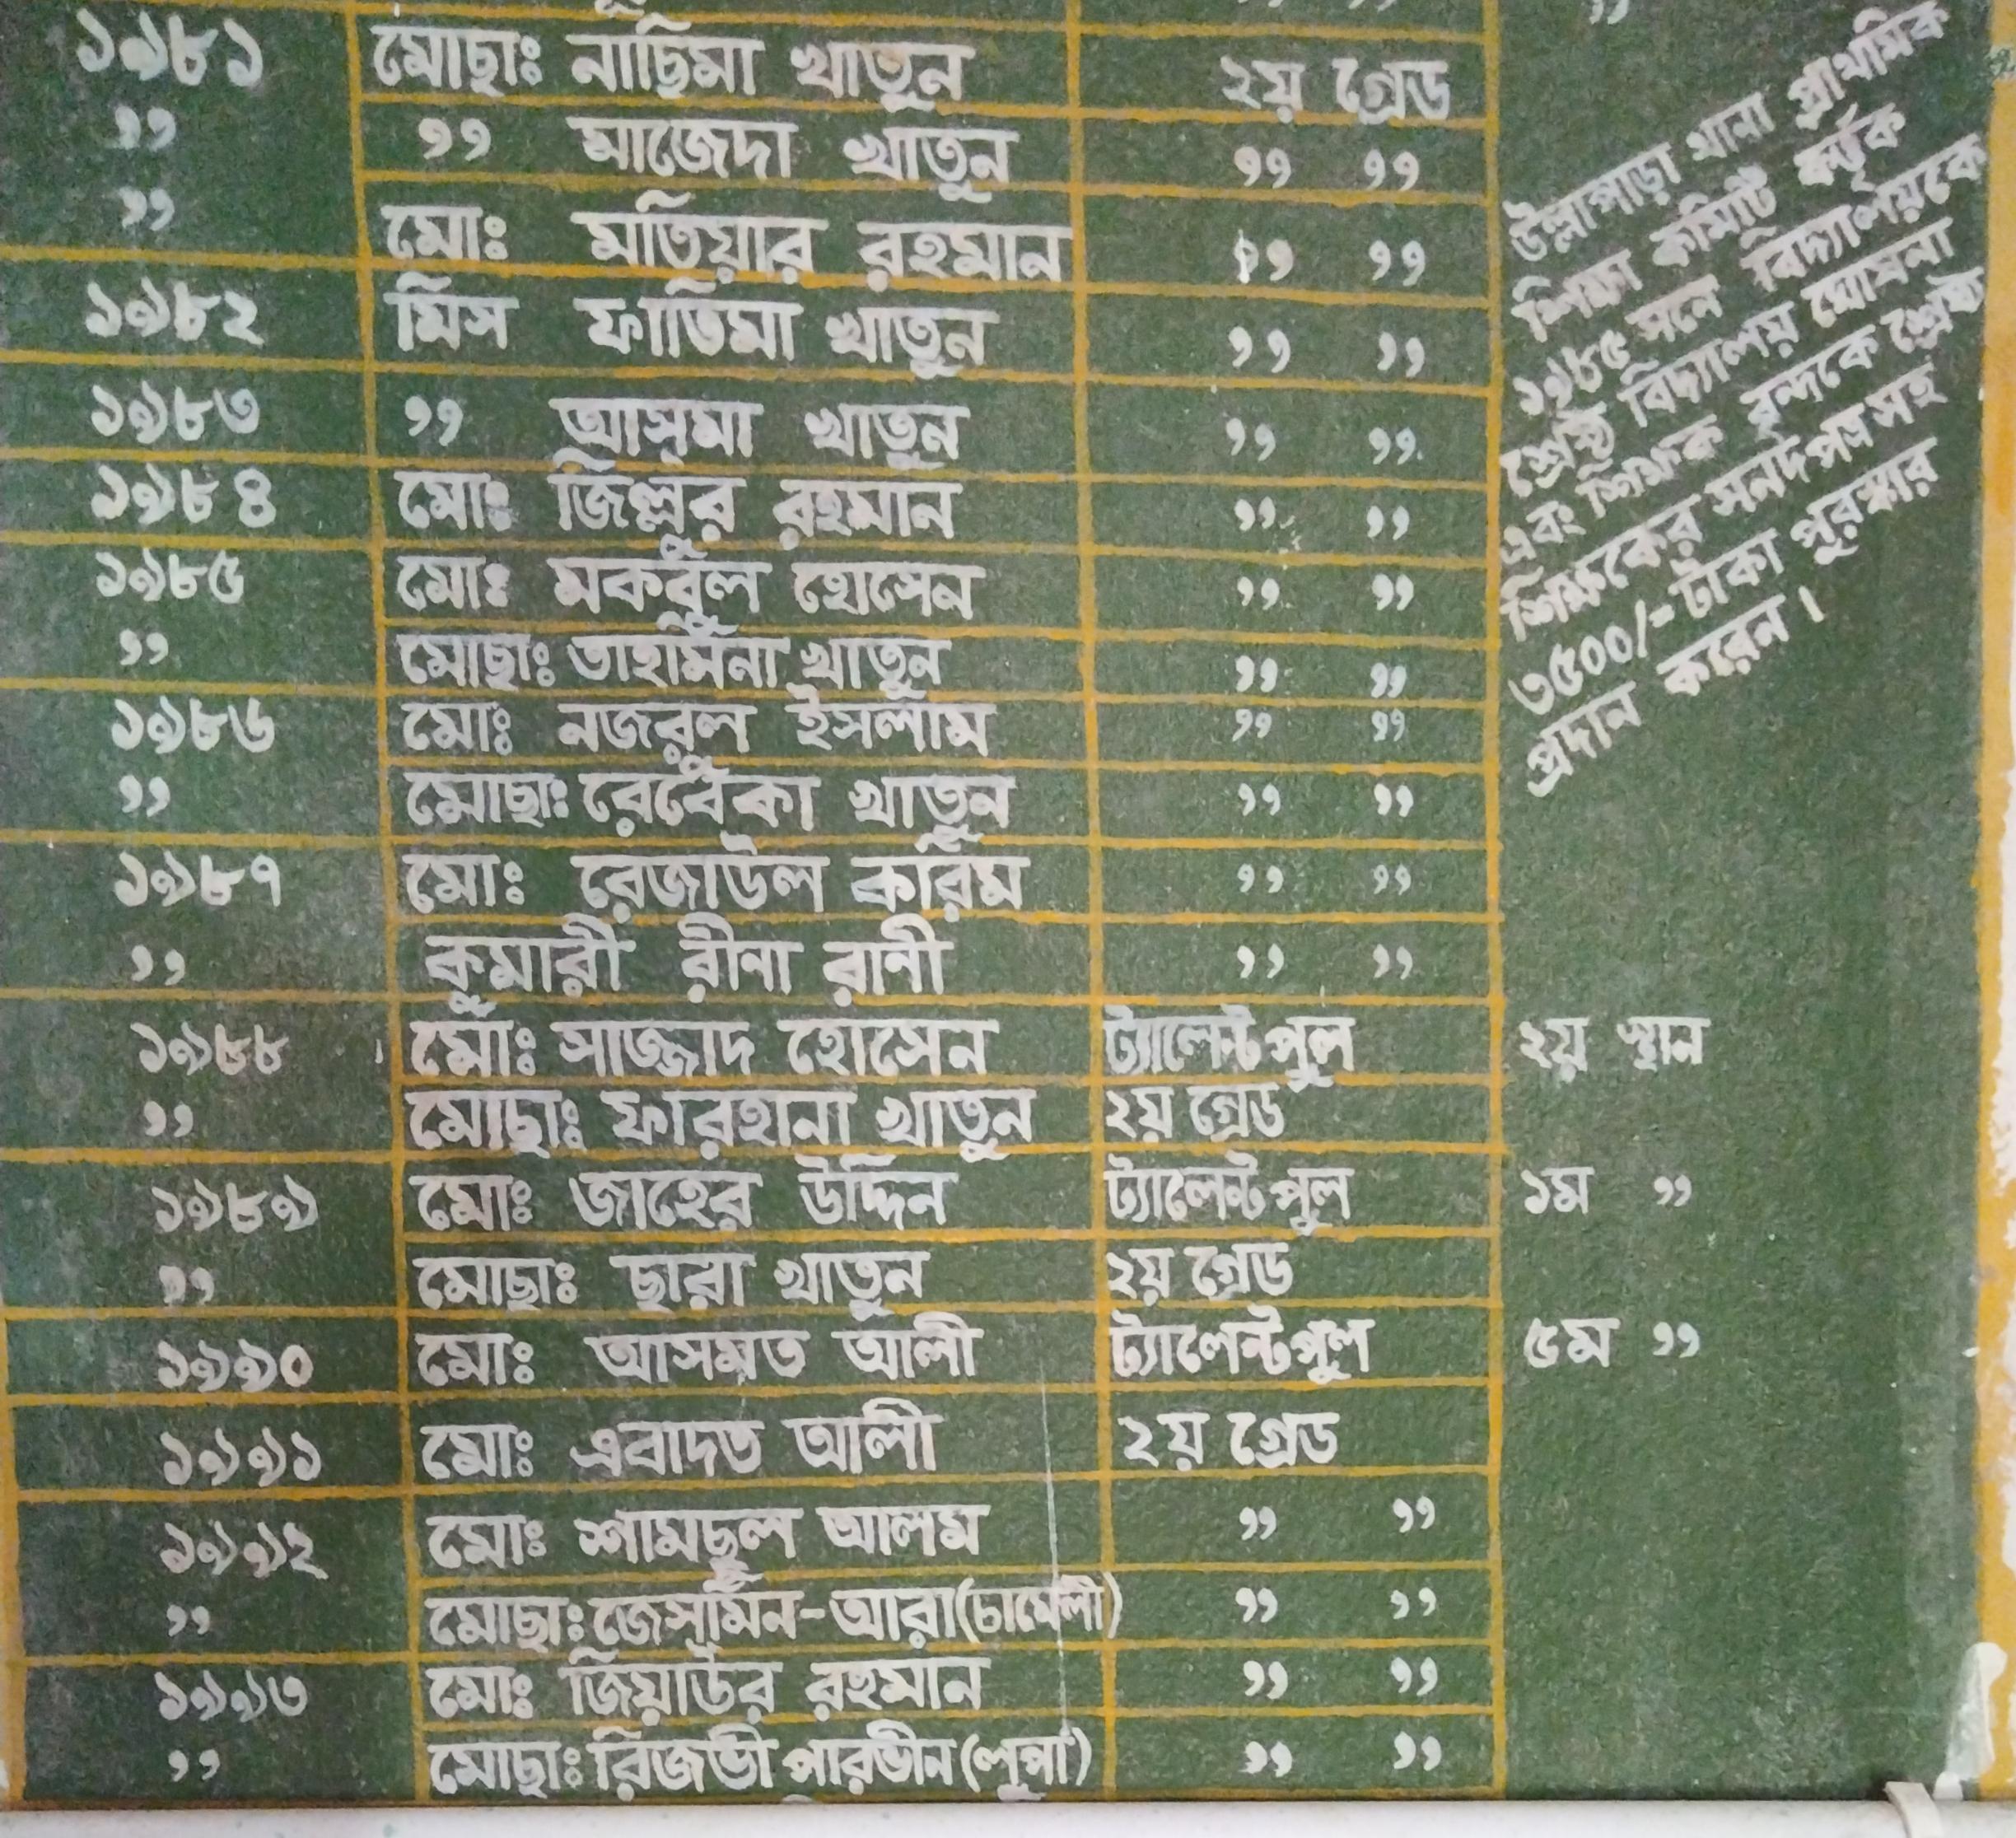 ১৯৮১ মোছাঃ নাছিমা খাতুন ২য় গ্রেড
,, ,, মাজেদা খাতুন ,, ,,
,, মোঃ মতিয়ার রহমান ,, ,,
১৯৮২ মিস ফাতিমা খাতুন ,, ,,
১৯৮৩ ,, আসমা খাতুন ,, ,,
১৯৮৪ মোঃ জিল্লুর রহমান ,, ,,
১৯৮৫ মোঃ মকবুল হোসেন ,, ,,
,, মোছাঃ তাহমিনা খাতুন ,, ,,
১৯৮৬ মোঃ নজরুল ইসলাম ,, ,,
,, মোছাঃ রেবেকা খাতুন ,, ,,
১৯৮৭ মোঃ রেজাউল করিম ,, ,,
,, কুমারী রীনা রানী ,, ,,
১৯৮৮ মোঃ সাজ্জাদ হোসেন ট্যালেন্টপুল ২য় স্থান
,, মোছাঃ ফারহানা খাতুন ২য় গ্রেড
১৯৮৯ মোঃ জাহের উদ্দিন ট্যালেন্টপুল ১ম ,,
,, মোছাঃ ছারা খাতুন ২য় গ্রেড
১৯৯০ মোঃ আসমত আলী ট্যালেন্টপুল ৫ম ,,
১৯৯১ মোঃ এবাদত আলী ২য় গ্রেড
১৯৯২ মোঃ শামছুল আলম ,, ,,
,, মোছাঃ জেসমিন-আরা (চামেলী) ,, ,,
১৯৯৩ মোঃ জিয়াউর রহমান ,, ,,
,, মোছাঃ রিজভী পারভীন (লুপা) ,, ,,
উল্লাপাড়া থানা প্রাথমিক
শিক্ষা কমিটি কর্তৃক
১৯৮৫ সনে বিদ্যালয়কে
শ্রেষ্ঠ বিদ্যালয় ঘোষনা
এবং শিক্ষক বৃন্দকে শ্রেষ্ঠ
শিক্ষকের সনদপত্র সহ
৩৫০০/= টাকা পুরস্কার
প্রদান করেন।